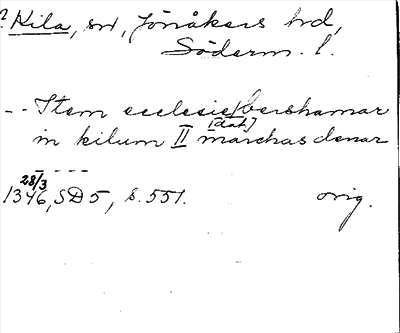 ? Kila, sn, Jönåkers hd,
Söderm. l.
-- Item ecclesie bershamar
[dat]
in kilum II marchas denar
----
28/3
1346, SD 5, s. 551. orig.